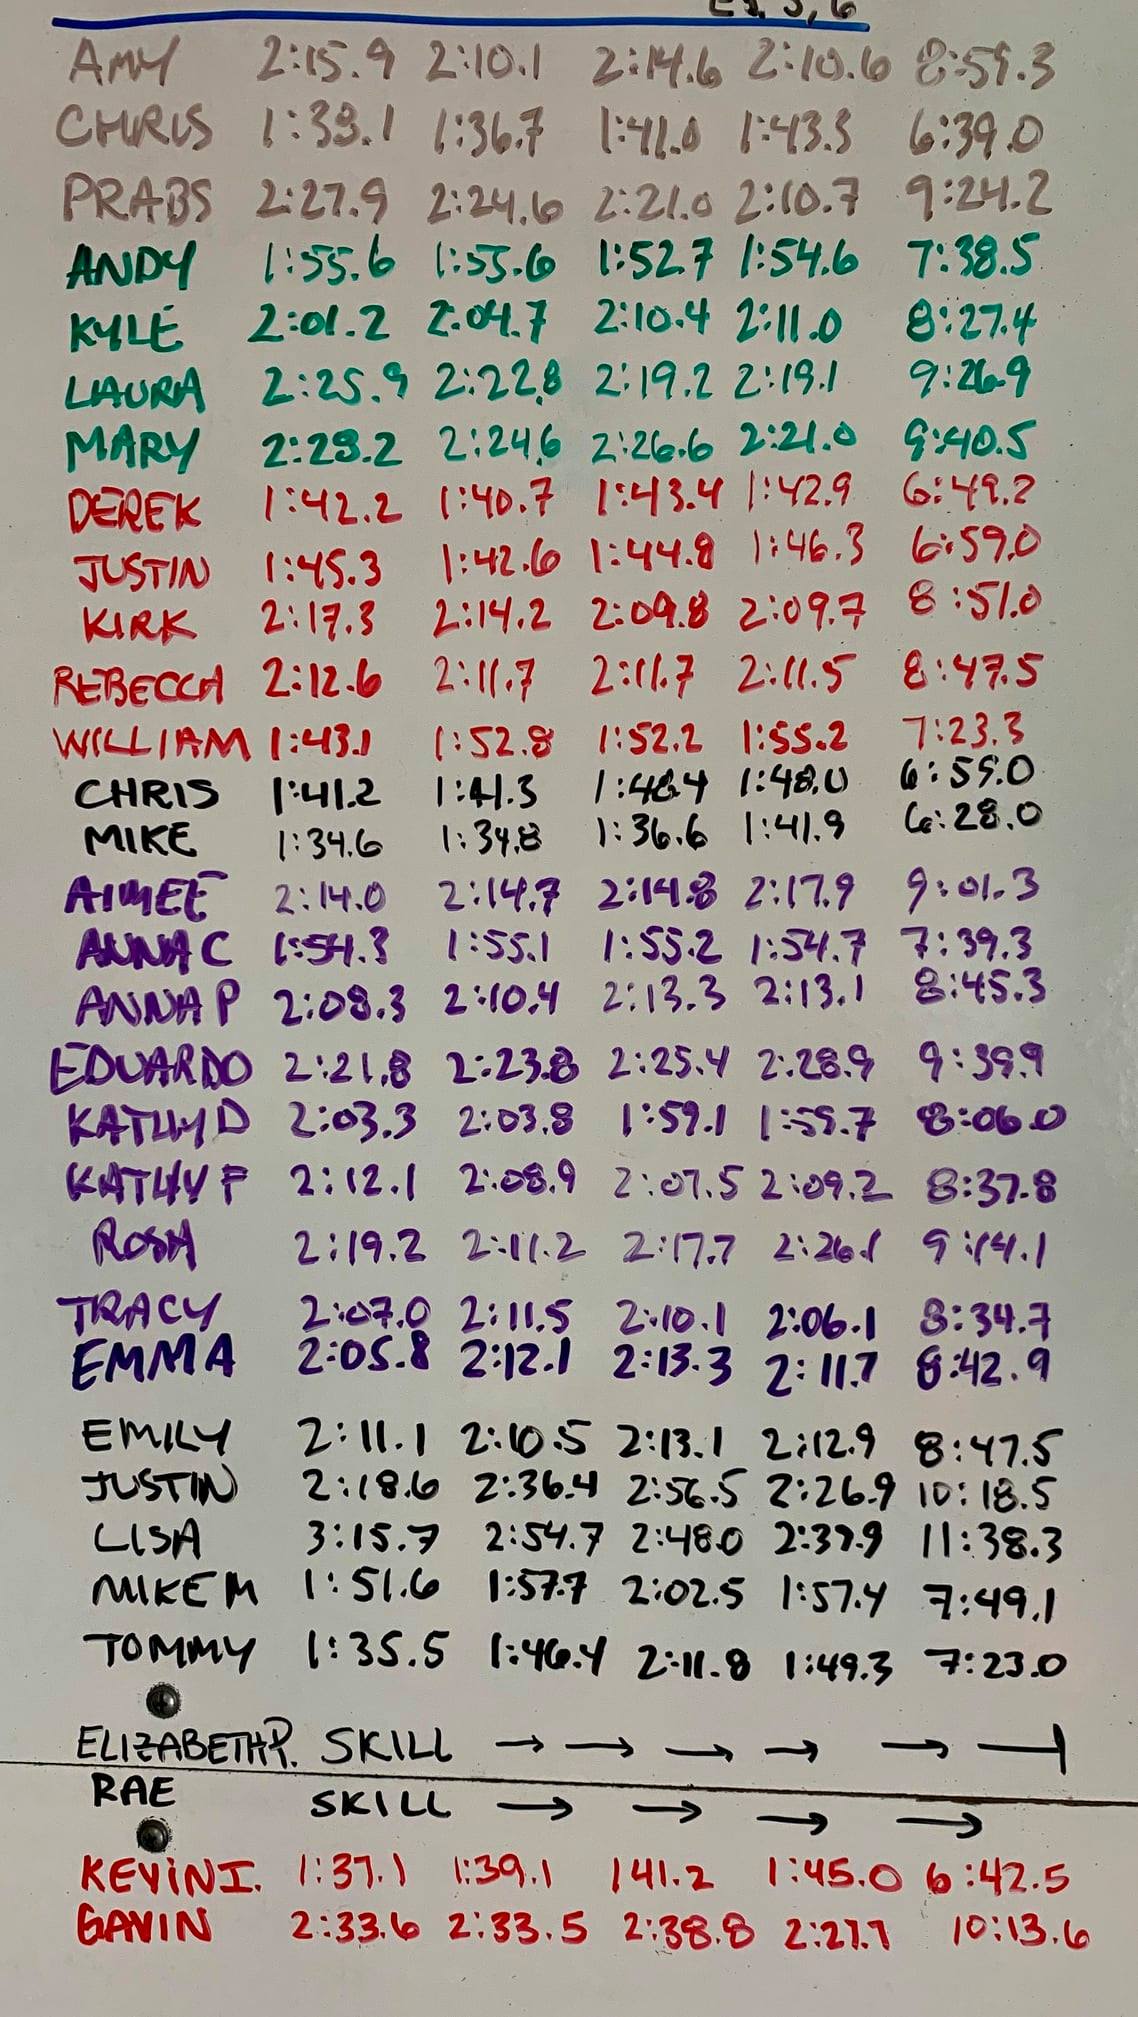 AMY 2:15.9 2:10.1 2:14.6 2:10.6 8:59.3
CHRIS 1:38.1 1:36.7 1:41.0 1:43.3 6:39.0
PRABS 2:27.9 2:24.6 2:21.0 2:10.7 9:24.2
ANDY 1:55.6 1:55.6 1:52.7 1:54.6 7:38.5
KYLE 2:01.2 2:04.7 2:10.4 2:11.0 8:27.4
LAURA 2:25.9 2:22.8 2:19.2 2:19.1 9:26.9
MARY 2:28.2 2:24.6 2:26.6 2:21.0 9:40.5
DEREK 1:42.2 1:40.7 1:43.4 1:42.9 6:49.2
JUSTIN 1:45.3 1:42.6 1:44.8 1:46.3 6:59.0
KIRK 2:17.3 2:14.2 2:09.8 2:09.7 8:51.0
REBECCA 2:12.6 2:11.7 2:11.7 2:11.5 8:47.5
WILLIAM 1:43.1 1:52.8 1:52.2 1:55.2 7:23.3
CHRIS 1:41.2 1:41.3 1:48.4 1:48.0 6:59.0
MIKE 1:34.6 1:34.8 1:36.6 1:41.9 6:28.0
AIMEE 2:14.0 2:14.7 2:14.8 2:17.9 9:01.3
ANNA C 1:54.3 1:55.1 1:55.2 1:54.7 7:39.3
ANNA P 2:08.3 2:10.4 2:13.3 2:13.1 8:45.3
EDUARDO 2:21.8 2:23.8 2:25.4 2:28.9 9:39.9
KATHY D 2:03.3 2:03.8 1:59.1 1:59.7 8:06.0
KATHY F 2:12.1 2:08.9 2:07.5 2:09.2 8:37.8
ROSA 2:19.2 2:11.2 2:17.7 2:26.1 9:14.1
TRACY 2:07.0 2:11.5 2:10.1 2:06.1 8:34.7
EMMA 2:05.8 2:12.1 2:13.3 2:11.7 8:42.9
EMILY 2:11.1 2:10.5 2:13.1 2:12.9 8:47.5
JUSTIN 2:18.6 2:36.4 2:56.5 2:26.9 10:18.5
LISA 3:15.7 2:54.7 2:48.0 2:39.9 11:38.3
MIKE M 1:51.6 1:57.7 2:02.5 1:57.4 7:49.1
TOMMY 1:35.5 1:46.4 2:11.8 1:49.3 7:23.0
ELIZABETH P. SKILL → → → → → —|
RAE SKILL → → → →
KEVIN I. 1:37.1 1:39.1 141.2 1:45.0 6:42.5
GAVIN 2:33.6 2:33.5 2:38.8 2:27.7 10:13.6